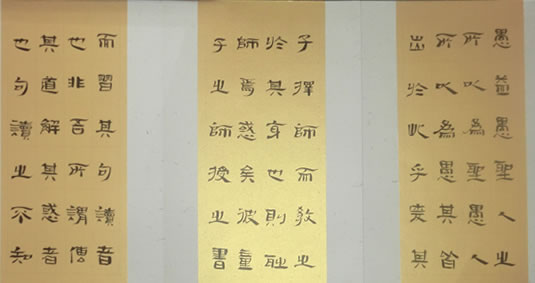 愚益愚聖人之
所以為聖愚人
所以為愚其皆
出於此乎愛其
子擇師而教之
於其身也則恥
師焉惑矣彼童
子之師授之書
而習其句讀者
也非吾所謂傳
其道解其惑者
也句讀之不知